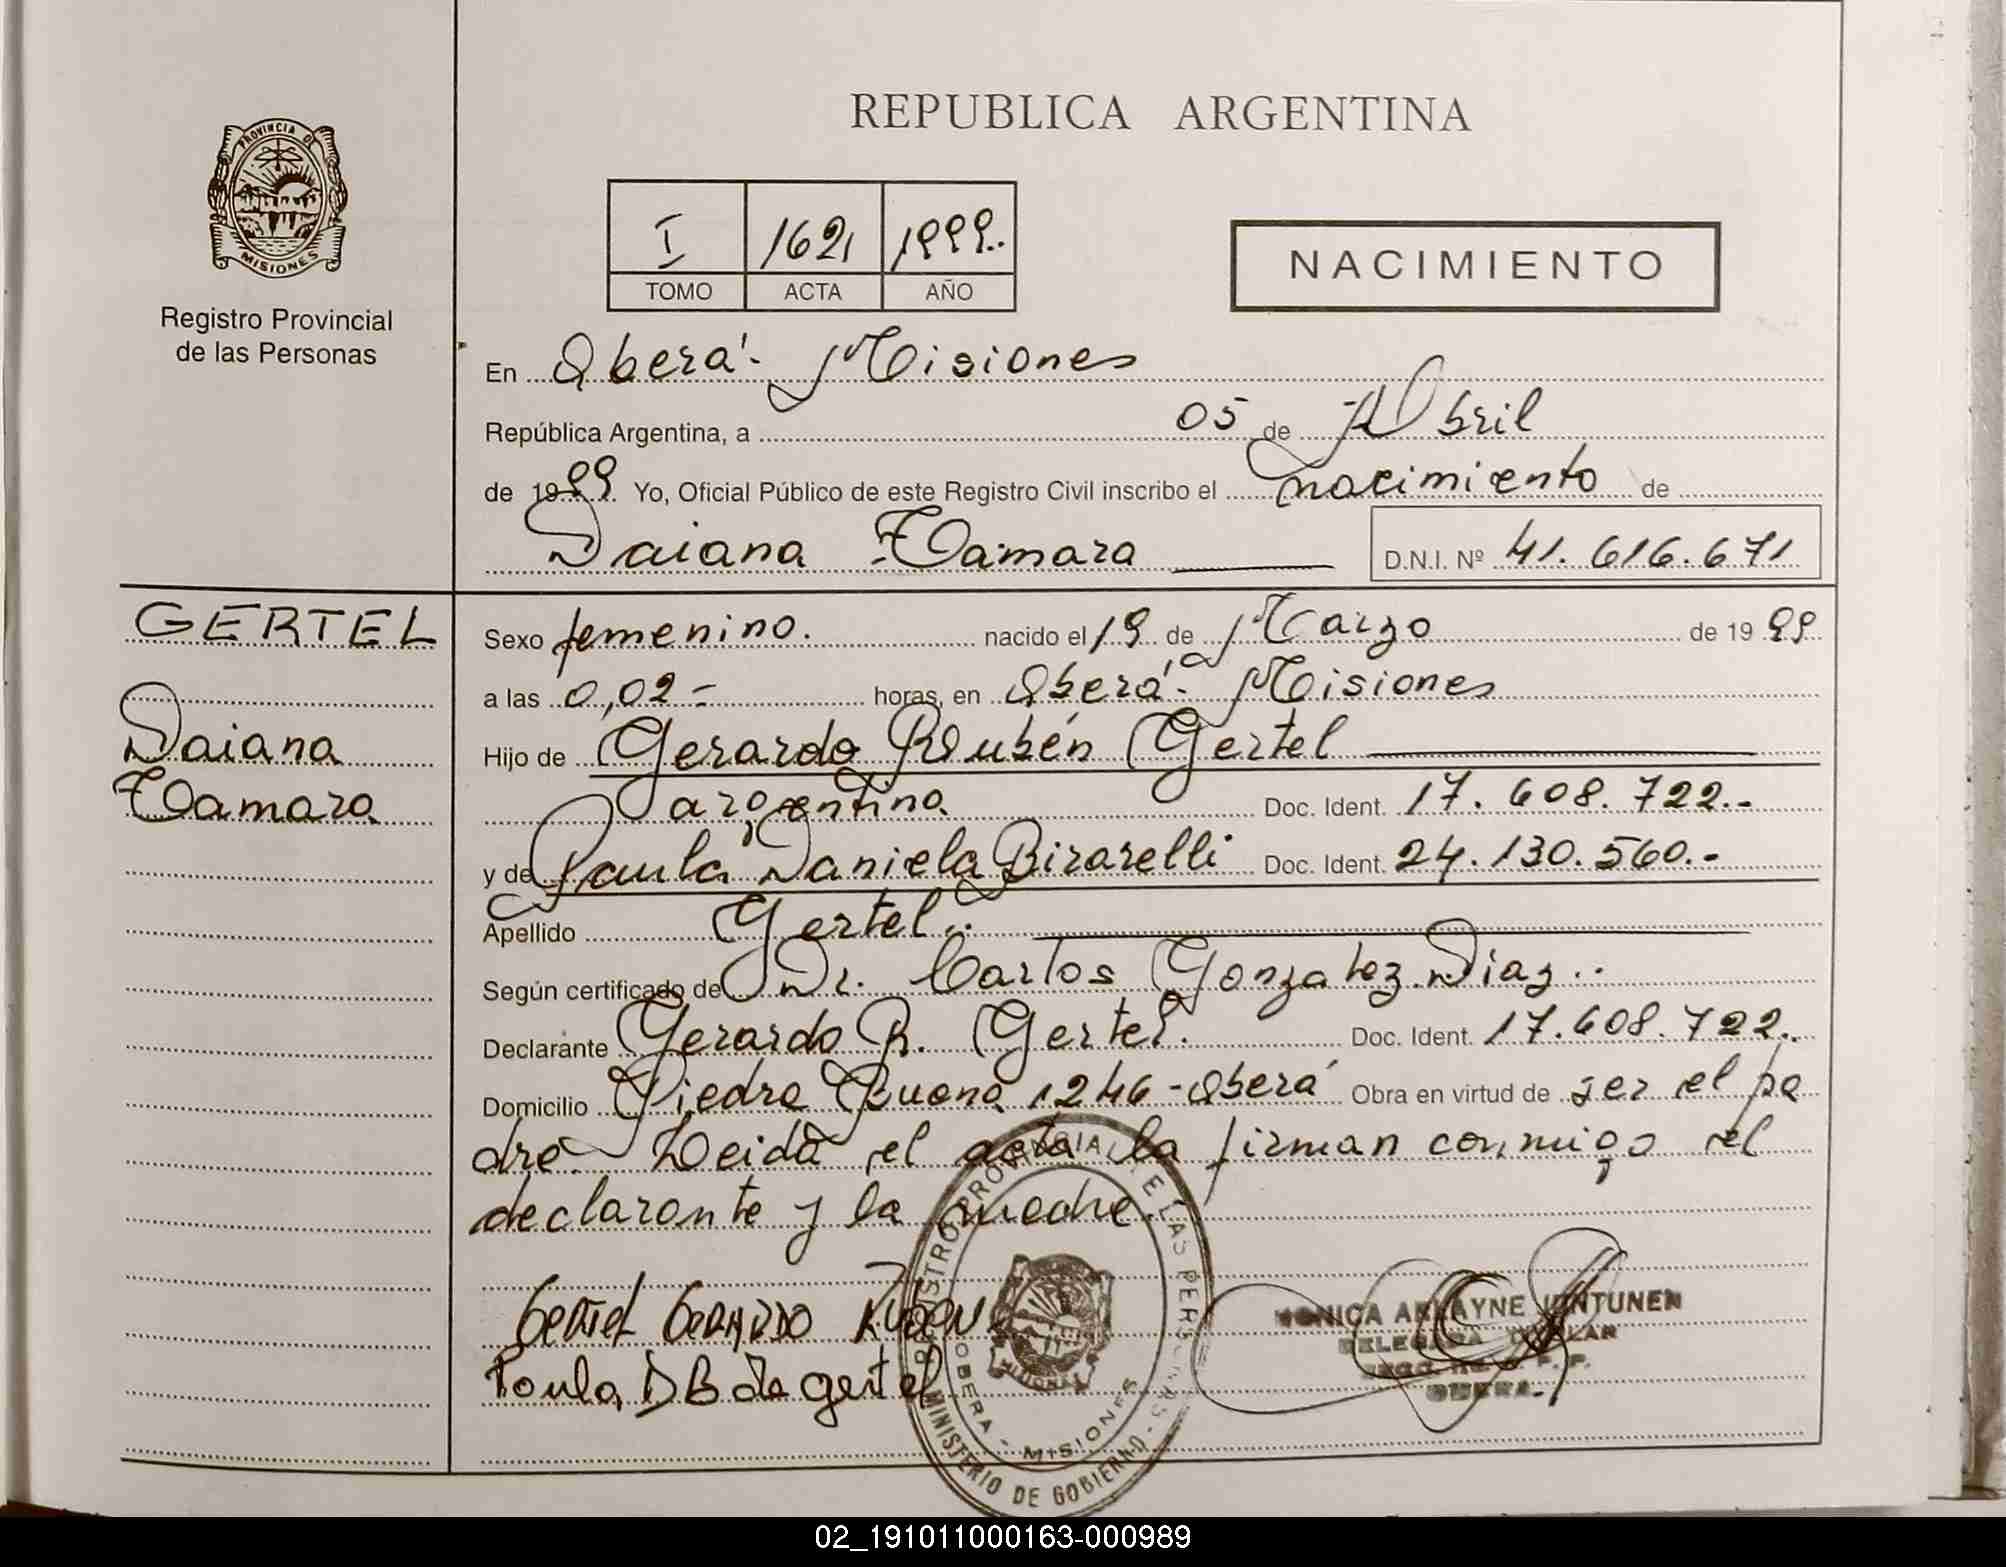 REPUBLICA ARGENTINA
PROVINCIA DE
MISIONES
Registro Provincial
de las Personas
I 1621 1999..
TOMO ACTA AÑO
NACIMIENTO
En Oberá - Misiones
República Argentina, a 05 de Abril
de 1999. Yo, Oficial Público de este Registro Civil inscribo el nacimiento de
Daiana Tamara D.N.I. Nº 41.616.671
GERTEL
Daiana
Tamara
Sexo femenino. nacido el 19 de Marzo de 19 99
a las 0,02 - horas, en Oberá - Misiones
Hijo de Gerardo Rubén Gertel
argentino Doc. Ident. 17.608.722.-
y de Paula Daniela Birarelli Doc. Ident. 24.130.560.-
Apellido Gertel..
Según certificado de Dr. Carlos Gonzalez Diaz..
Declarante Gerardo R. Gertel. Doc. Ident. 17.608.722..
Domicilio Piedra Buena 1246 - Oberá Obra en virtud de ser el pa
dre. Leida el acta la firman conmigo el
declarante y la madre.
Gertel Gerardo Ruben
Paula DB de gertel
REGISTRO PROVINCIAL DE LAS PERSONAS
OBERA - MISIONES
MINISTERIO DE GOBIERNO
MISIONES
MONICA JUNTUNEN
DELEGADA TITULAR
OBERA.
02_191011000163-000989